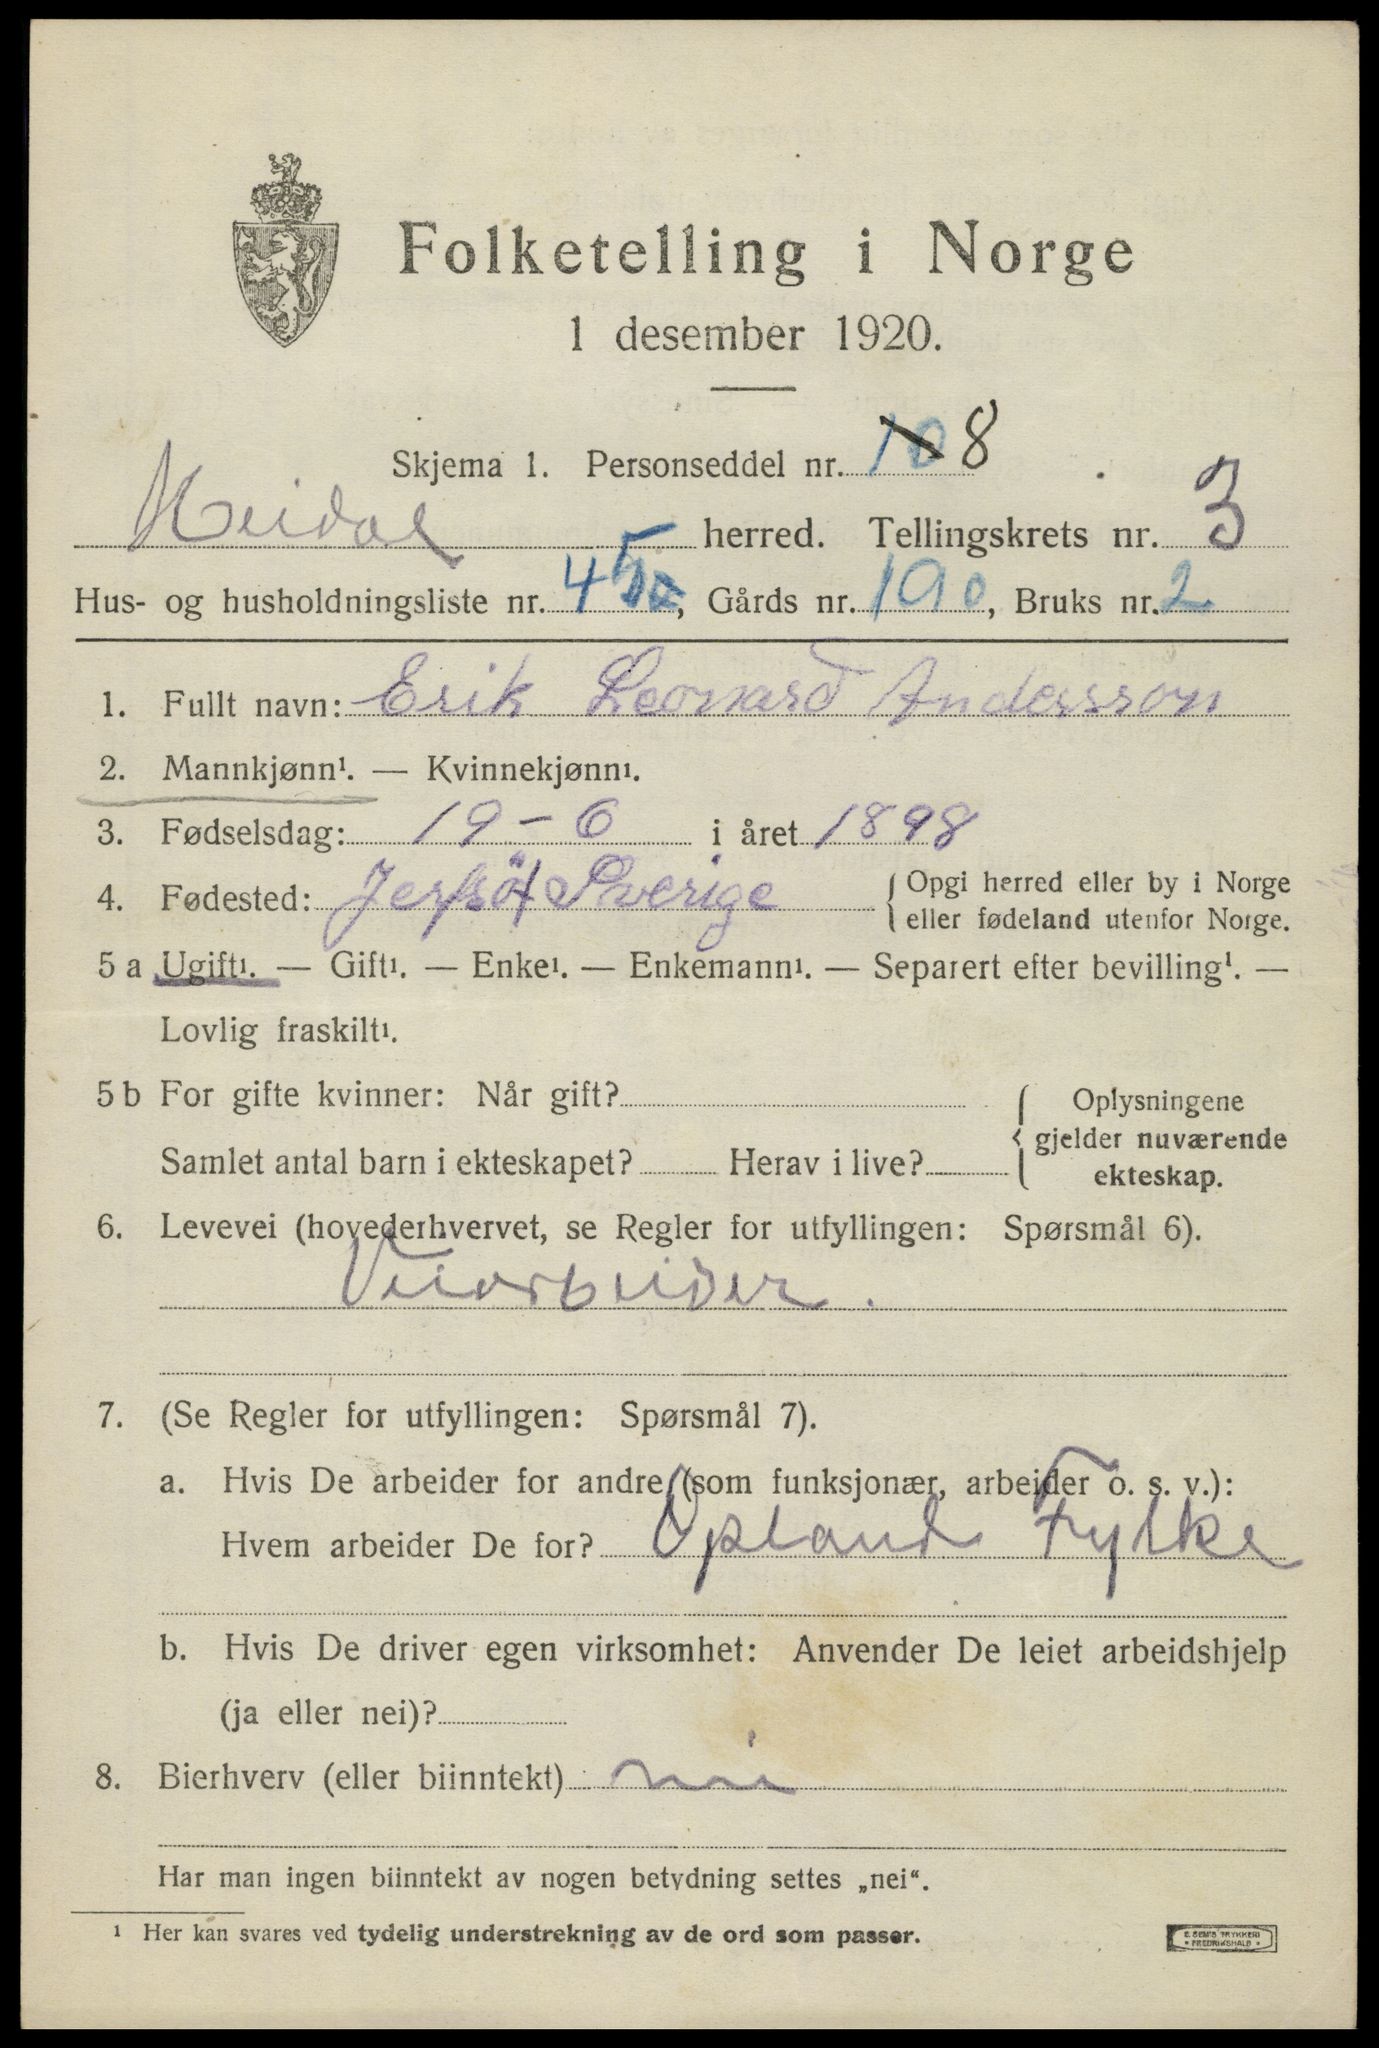 Folketelling i Norge
1 desember 1920.
Skjema 1. Personseddel nr. 10 8
Heidal herred. Tellingskrets nr. 3
Hus- og husholdningsliste nr. 45, Gårds nr. 190, Bruks nr. 2
1. Fullt navn: Erik Leonard Andersson
2. Mannkjønn¹. — Kvinnekjønn¹.
3. Fødselsdag: 19-6 i året 1898
4. Fødested: Jerfsö Sverige {Opgi herred eller by i Norge
eller fødeland utenfor Norge.
5 a Ugift¹. — Gift¹. — Enke¹. — Enkemann¹. — Separert efter bevilling¹. —
Lovlig fraskilt¹.
5 b For gifte kvinner: Når gift?
Samlet antal barn i ekteskapet? Herav i live?
{Oplysningene
gjelder nuværende
ekteskap.
6. Levevei (hovederhvervet, se Regler for utfyllingen: Spørsmål 6).
Veiarbeider.
7. (Se Regler for utfyllingen: Spørsmål 7).
a. Hvis De arbeider for andre (som funksjonær, arbeider o. s. v.):
Hvem arbeider De for? Opland Fylke
b. Hvis De driver egen virksomhet: Anvender De leiet arbeidshjelp
(ja eller nei)?
8. Bierhverv (eller biinntekt) nei
Har man ingen biinntekt av nogen betydning settes „nei“.
¹ Her kan svares ved tydelig understrekning av de ord som passer.
E. SEM'S TRYKKERI
• FREDRIKSHALD •